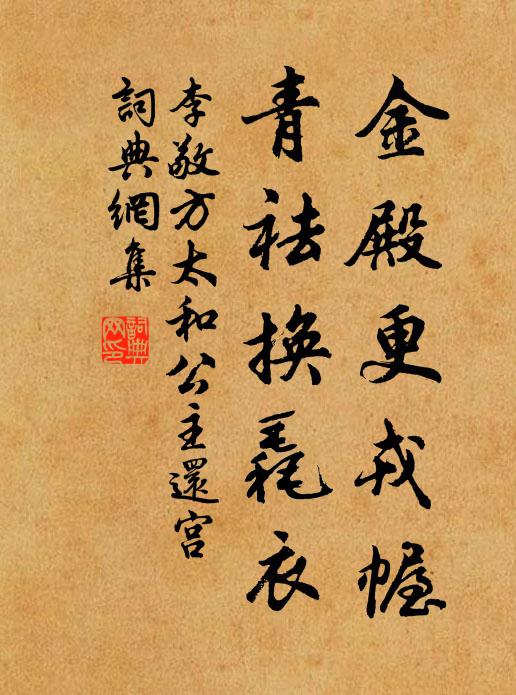 金殿更戎幄
青祛換毳衣
李敬方太和公主還宮
詞典網集
詞典网印